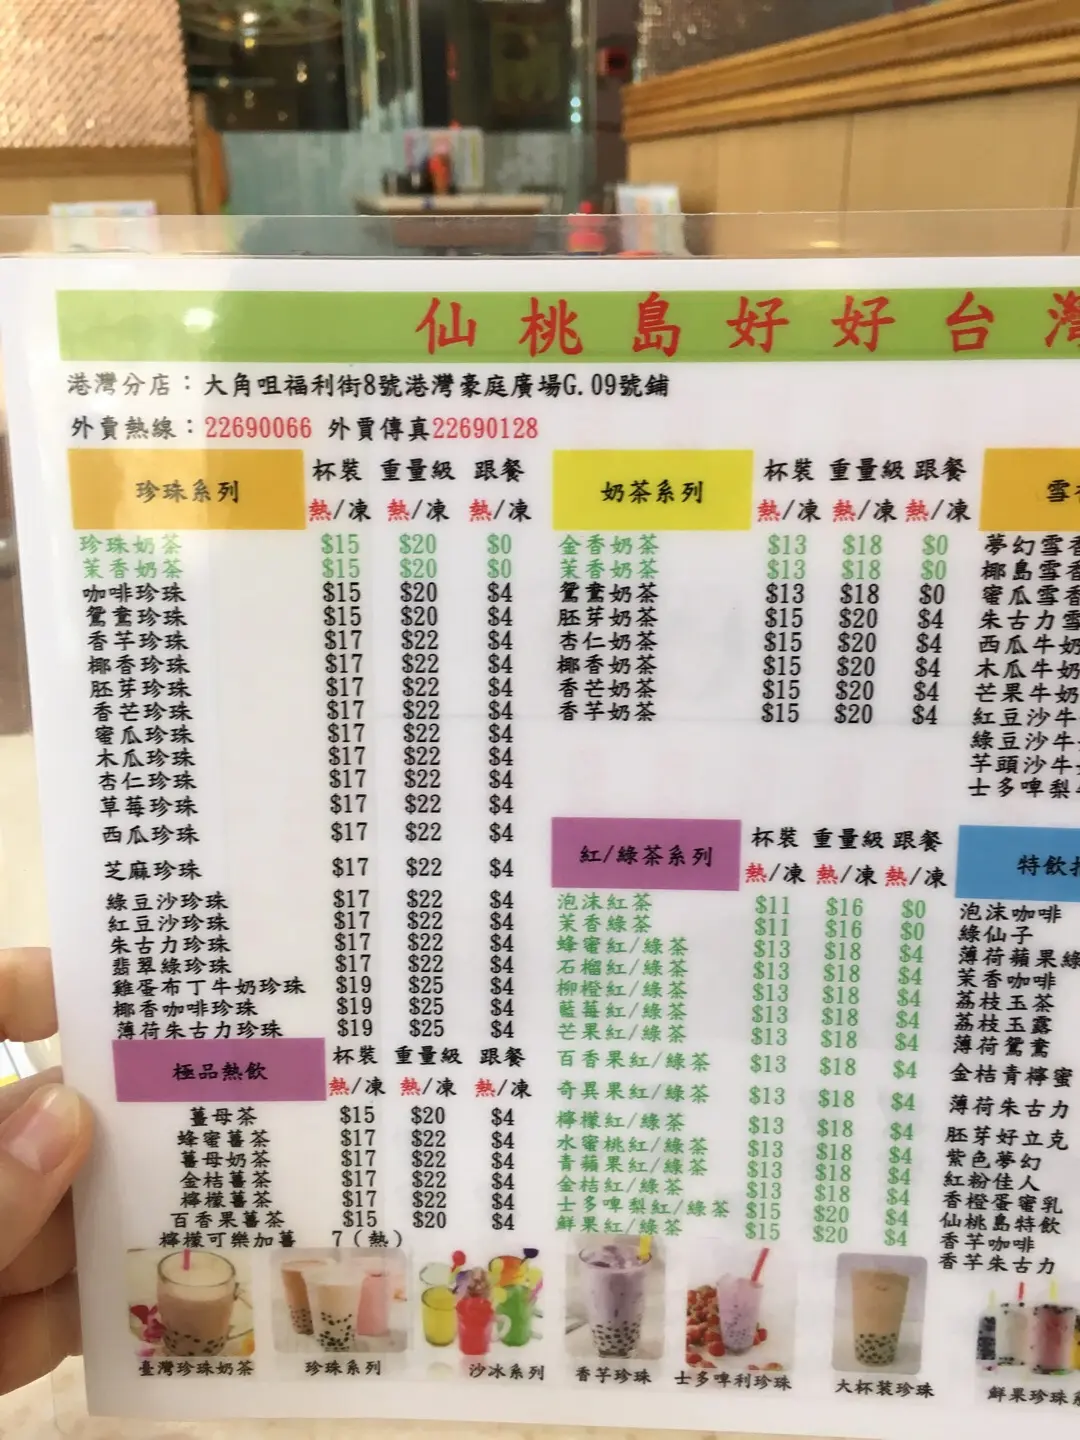 仙桃島好好台灣
港灣分店：大角咀福利街8號港灣豪庭廣場G.09號鋪
外賣熱線：22690066 外賈傳真22690128
珍珠系列 杯裝 重量級 跟餐
熱/凍 熱/凍 熱/凍
珍珠奶茶 $15 $20 $0
茉香奶茶 $15 $20 $0
咖啡珍珠 $15 $20 $4
鴛鴦珍珠 $15 $20 $4
香芋珍珠 $17 $22 $4
椰香珍珠 $17 $22 $4
胚芽珍珠 $17 $22 $4
香芒珍珠 $17 $22 $4
蜜瓜珍珠 $17 $22 $4
木瓜珍珠 $17 $22 $4
杏仁珍珠 $17 $22 $4
草莓珍珠 $17 $22 $4
西瓜珍珠 $17 $22 $4
芝麻珍珠 $17 $22 $4
綠豆沙珍珠 $17 $22 $4
紅豆沙珍珠 $17 $22 $4
朱古力珍珠 $17 $22 $4
翡翠綠珍珠 $17 $22 $4
雞蛋布丁牛奶珍珠 $19 $25 $4
椰香咖啡珍珠 $19 $25 $4
薄荷朱古力珍珠 $19 $25 $4
極品熱飲 杯裝 重量級 跟餐
熱/凍 熱/凍 熱/凍
薑母茶 $15 $20 $4
蜂蜜薑茶 $17 $22 $4
薑母奶茶 $17 $22 $4
金桔薑茶 $17 $22 $4
檸檬薑茶 $17 $22 $4
百香果薑茶 $15 $20 $4
檸檬可樂加薑 7(熱)
奶茶系列 杯裝 重量級 跟餐
熱/凍 熱/凍 熱/凍
金香奶茶 $13 $18 $0
茉香奶茶 $13 $18 $0
鴛鴦奶茶 $13 $18 $0
胚芽奶茶 $15 $20 $4
杏仁奶茶 $15 $20 $4
椰香奶茶 $15 $20 $4
香芒奶茶 $15 $20 $4
香芋奶茶 $15 $20 $4
紅/綠茶系列 杯裝 重量級 跟餐
熱/凍 熱/凍 熱/凍
泡沫紅茶 $11 $16 $0
茉香綠茶 $11 $16 $0
蜂蜜紅/綠茶 $13 $18 $4
石榴紅/綠茶 $13 $18 $4
柳橙紅/綠茶 $13 $18 $4
藍莓紅/綠茶 $13 $18 $4
芒果紅/綠茶 $13 $18 $4
百香果紅/綠茶 $13 $18 $4
奇異果紅/綠茶 $13 $18 $4
檸檬紅/綠茶 $13 $18 $4
水蜜桃紅/綠茶 $13 $18 $4
青蘋果紅/綠茶 $13 $18 $4
金桔紅/綠茶 $13 $18 $4
士多啤梨紅/綠茶 $15 $20 $4
鮮果紅/綠茶 $15 $20 $4
雪
夢幻雪香
椰島雪香
蜜瓜雪香
朱古力雪
西瓜牛奶
木瓜牛奶
芒果牛奶
紅豆沙牛
綠豆沙牛
芋頭沙牛
士多啤梨
特飲
泡沫咖啡
綠仙子
薄荷蘋果綠
茉香咖啡
荔枝玉茶
荔枝玉露
薄荷鴛鴦
金桔青檸蜜
薄荷朱古力
胚芽好立克
紫色夢幻
紅粉佳人
香橙蛋蜜乳
仙桃島特飲
香芋咖啡
香芋朱古力
臺灣珍珠奶茶
珍珠系列
沙冰系列
香芋珍珠
士多啤利珍珠
大杯裝珍珠
鮮果珍珠系